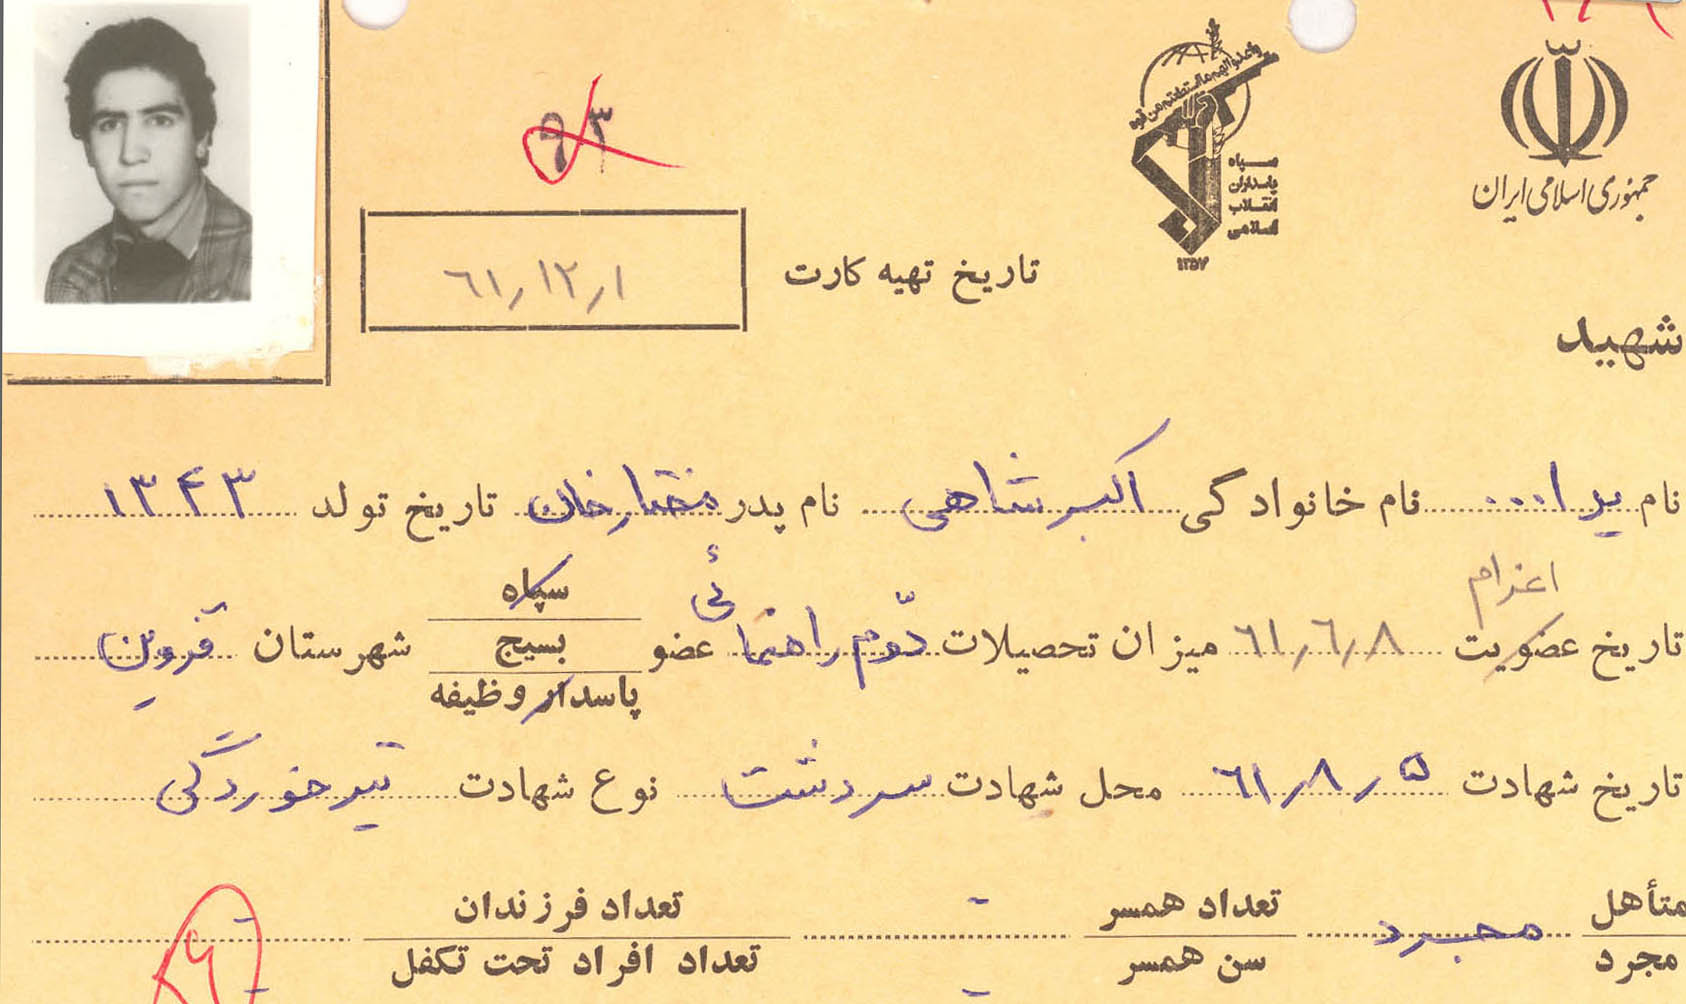 جمهوری اسلامی ایران
واعدوا لهم ما استطعتم من قوة
سپاه
پاسداران
انقلاب
اسلامی
۱۳۵۷
۹۳
تاریخ تهیه کارت ۶۱٫۱۲٫۱
شهید
نام یدا... نام خانوادگی اکبرشاهی نام پدر مختارخان تاریخ تولد ۱۳۴۳
اعزام
تاریخ عضویت ۶۱٫۶٫۸ میزان تحصیلات دوّم راهنمائی عضو سپاه بسیج پاسدار وظیفه شهرستان قزوین
تاریخ شهادت ۶۱٫۸٫۵ محل شهادت سردشت نوع شهادت تیرخوردگی
متأهل مجرد مجرد تعداد همسر - سن همسر - تعداد فرزندان - تعداد افراد تحت تکفل -